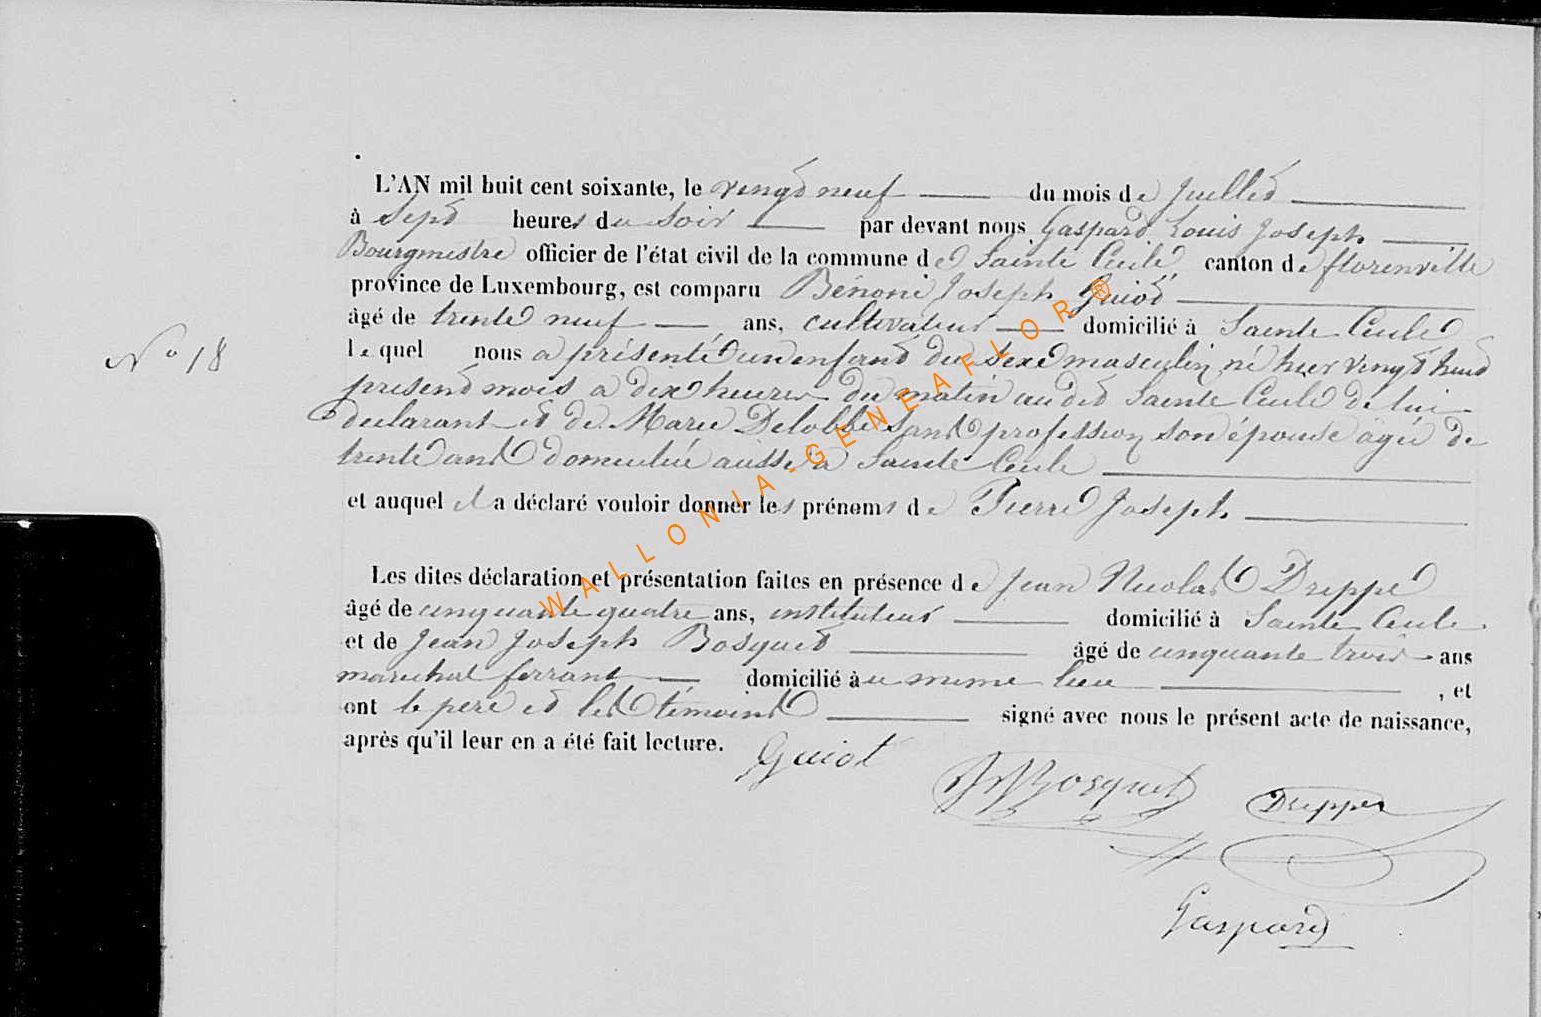 L'AN mil huit cent soixante, le vingt neuf du mois de Juillet
à Sept heures du Soir par devant nous Gaspard Louis Joseph
Bourgmestre officier de l'état civil de la commune de Sainte Cecile, canton de florenville
province de Luxembourg, est comparu Bénoni Joseph Guiot
âgé de trente neuf ans, cultivateur domicilié à Sainte Cecile
N° 18
lequel nous a présenté un enfant du sexe masculin né hier vingt huit
present mois a dix heures du matin audit Sainte Cecile de lui
declarant et de Marie Delobbe Sans profession son épouse agée de
trente ans domiciliée aussi a Sainte Cecile
et auquel il a déclaré vouloir donner les prénoms de Pierre Joseph
Les dites déclaration et présentation faites en présence de Jean Nicolas Dreppe
âgé de cinquante quatre ans, instituteur domicilié à Sainte Cecile
et de Jean Joseph Bosquet âgé de cinquante trois ans
marechal ferrant domicilié au meme lieu , et
ont le pere et les témoins signé avec nous le présent acte de naissance,
après qu'il leur en a été fait lecture.
Guiot
JJ Bosquet Dreppe
Gaspard
WALLONIA-GENEAFLOR ®